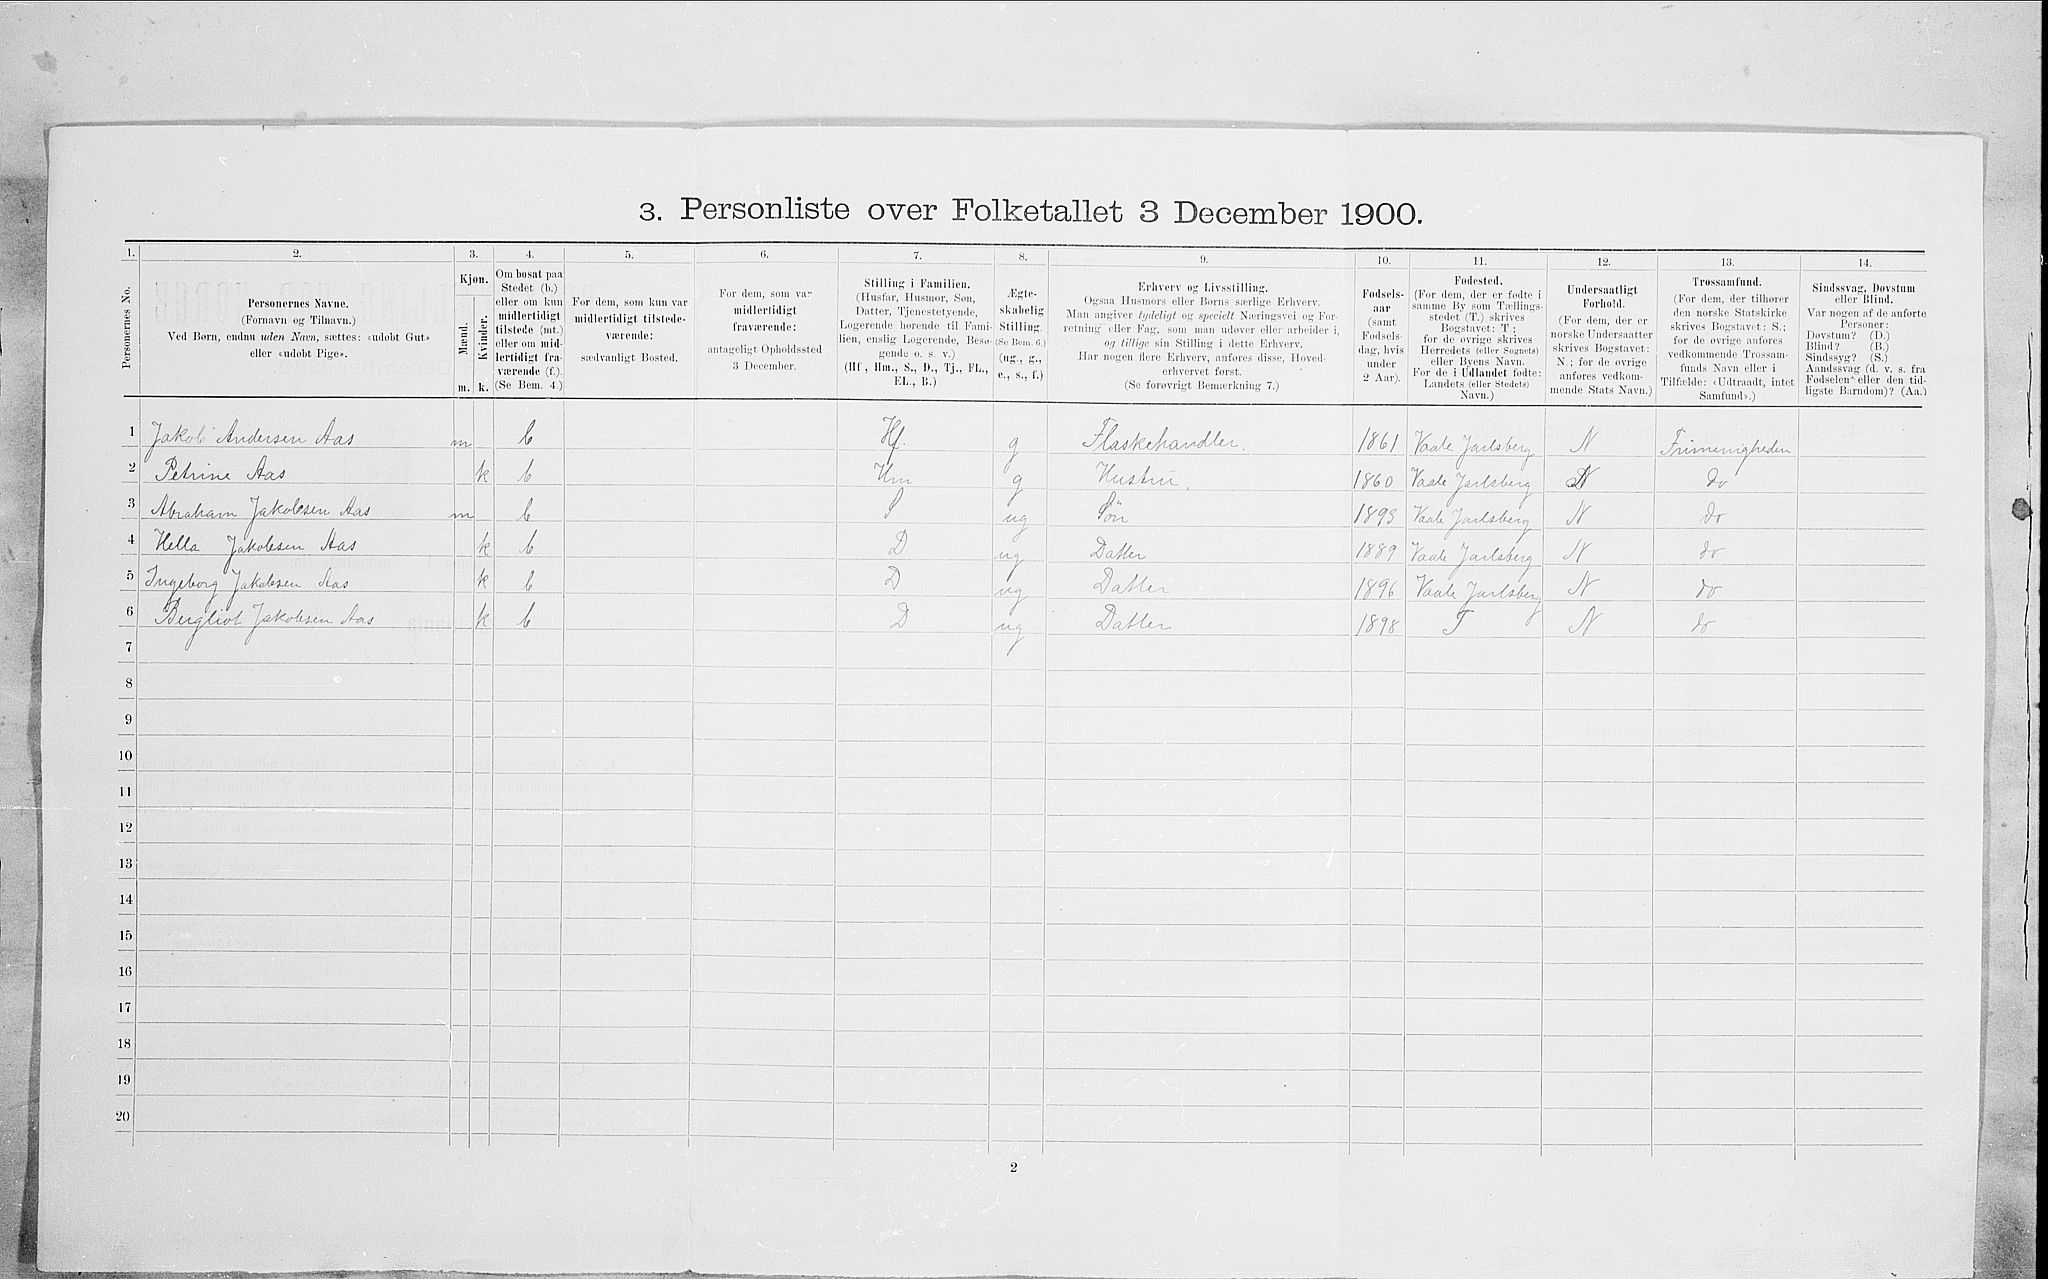 3. Personliste over Folketallet 3 December 1900.
1. 2. 3. 4. 5. 6. 7. 8. 9. 10. 11. 12. 13. 14.
Personernes No.
Personernes Navne.
(Fornavn og Tilnavn.)
Ved Børn, endnu uden Navn, sættes: «udøbt Gut»
eller «udøbt Pige».
Kjøn.
Mænd.
Kvinder.
m. k.
Om bosat paa
Stedet (b.)
eller om kun
midlertidigt
tilstede (mt.)
eller om mid-
lertidigt fra-
værende (f.).
(Se Bem. 4.)
For dem, som kun var
midlertidigt tilstede-
værende:
sædvanligt Bosted.
For dem, som var
midlertidigt
fraværende:
antageligt Opholdssted
3 December.
Stilling i Familien.
(Husfar, Husmor, Søn,
Datter, Tjenestetyende,
Logerende hørende til Fami-
lien, enslig Logerende, Besø-
gende o. s. v.)
(Hf., Hm., S., D., Tj., FL.,
EL., B.)
Ægte-
skabelig
Stilling.
(Se Bem. 6.)
(ug., g.,
e., s., f.)
Erhverv og Livsstilling.
Ogsaa Husmors eller Børns særlige Erhverv.
Man angiver tydeligt og specielt Næringsvei og For-
retning eller Fag, som man udøver eller arbeider i,
og tillige sin Stilling i dette Erhverv.
Har nogen flere Erhverv, anføres disse, Hoved-
erhvervet først.
(Se forøvrigt Bemærkning 7.)
Fødsels-
aar
(samt
Fødsels-
dag, hvis
under
2 Aar).
Fødested.
(For dem, der er fødte i
samme By som Tællings-
stedet (T.) skrives
Bogstavet: T.;
for de øvrige skrives
Herredets (eller Sognets)
eller Byens Navn.
For de i Udlandet fødte:
Landets (eller Stedets)
Navn.)
Undersaatligt
Forhold.
(For dem, der er
norske Undersaatter
skrives Bogstavet:
N.; for de øvrige
anføres vedkom-
mende Stats Navn.)
Trossamfund.
(For dem, der tilhører
den norske Statskirke
skrives Bogstavet: S.;
for de øvrige anføres
vedkommende Trossam-
funds Navn eller i
Tilfælde: «Udtraadt, intet
Samfund».)
Sindssvag, Døvstum
eller Blind.
Var nogen af de anførte
Personer:
Døvstum? (D.)
Blind? (B.)
Sindssyg? (S.)
Aandssvag (d. v. s. fra
Fødselen eller den tid-
ligste Barndom)? (Aa.)
1 Jakob Andersen Aas m b Hf. g Flaskehandler. 1861 Vaale Jarlsberg N Frimenigheden
2 Petrine Aas k b Hm g Hustru. 1860 Vaale Jarlsberg N do
3 Abraham Jakobsen Aas m b S ug Søn 1893 Vaale Jarlsberg N do
4 Hella Jakobsen Aas k b D ug Datter 1889 Vaale Jarlsberg N do
5 Ingeborg Jakobsen Aas k b D ug Datter 1896 Vaale Jarlsberg N do
6 Bergliot Jakobsen Aas k b D ug Datter 1898 T N do
7
8
9
10
11
12
13
14
15
16
17
18
19
20
2